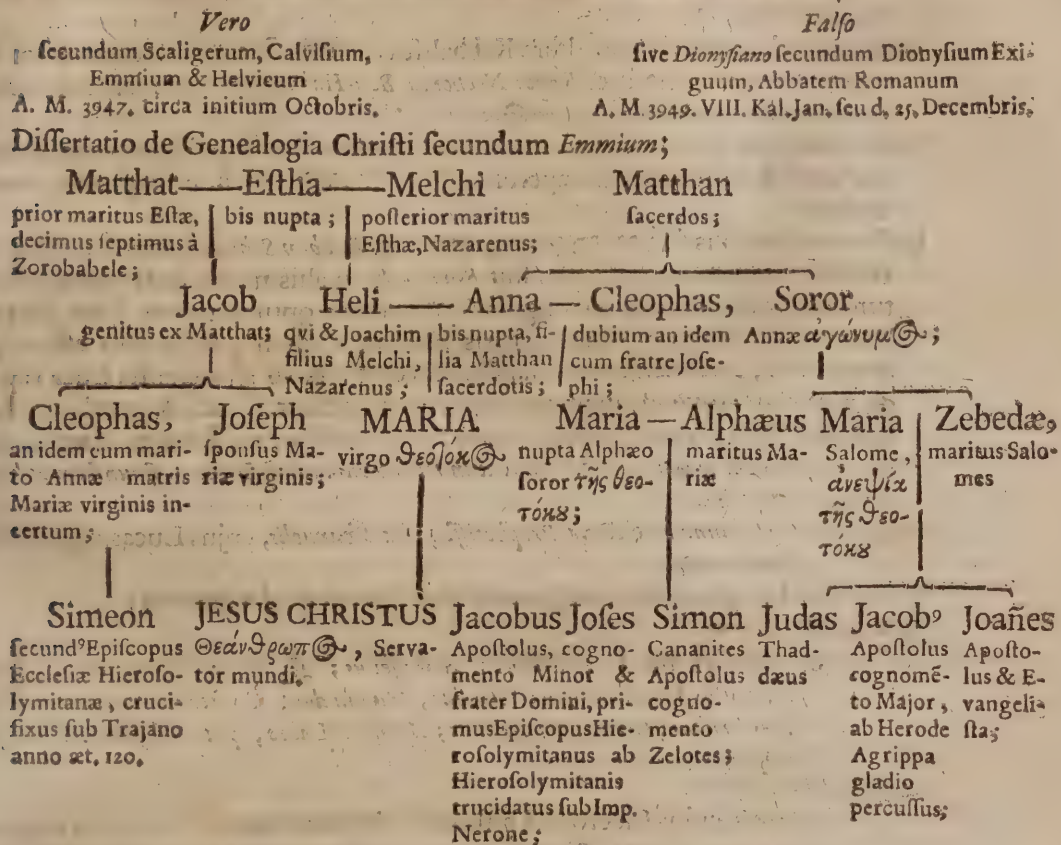 Vero
ſecundum Scaligerum, Calviſium,
Emmium & Helvicum
A. M. 3947. circa initium Octobris.
Falſo
ſive Dionyſiano ſecundum Dionyſium Exi-
guum, Abbatem Romanum
A. M. 3949. VIII. Kal. Jan. ſeu d. 25. Decembris.
Diſſertatio de Genealogia Chriſti ſecundum Emmium;
Matthat — Eſtha — Melchi Matthan
prior maritus Eſtæ,
decimus ſeptimus à
Zorobabele;
bis nupta;
poſterior maritus
Eſthæ, Nazarenus;
ſacerdos;
Jacob Heli — Anna — Cleophas, Soror
genitus ex Matthat;
qvi & Joachim
filius Melchi,
Nazarenus;
bis nupta, fi-
lia Matthan
ſacerdotis;
dubium an idem
cum fratre Joſe-
phi;
Annæ ἀγώνυμ⊕;
Cleophas, Joſeph MARIA Maria — Alphæus Maria Zebedæ,
an idem cum mari-
to Annæ matris
Mariæ virginis in-
certum;
ſponſus Ma-
riæ virginis;
virgo θεοτόκ⊕
nupta Alphæo
ſoror τῆς θεο-
τόκȣ;
maritus Ma-
riæ
Salome,
ἀνεψιὰ
τῆς θεο-
τόκȣ
maritus Salo-
mes
Simeon JESUS CHRISTUS Jacobus Joſes Simon Judas Jacobꝰ Joañes
ſecundꝰ Epiſcopus
Eccleſiæ Hieroſo-
lymitanæ, cruci-
fixus ſub Trajano
anno æt. 120.
Θεάνθρωπ⊕, Serva-
tor mundi.
Apoſtolus, cogno-
mento Minor &
frater Domini, pri-
mus Epiſcopus Hie-
roſolymitanus ab
Hieroſolymitanis
trucidatus ſub Imp.
Nerone;
Cananites
Apoſtolus
cogno-
mento
Zelotes;
Thad-
dæus
Apoſtolus
cognomē-
to Major,
ab Herode
Agrippa
gladio
percuſſus;
Apoſto-
lus & E-
vangeli-
ſta;